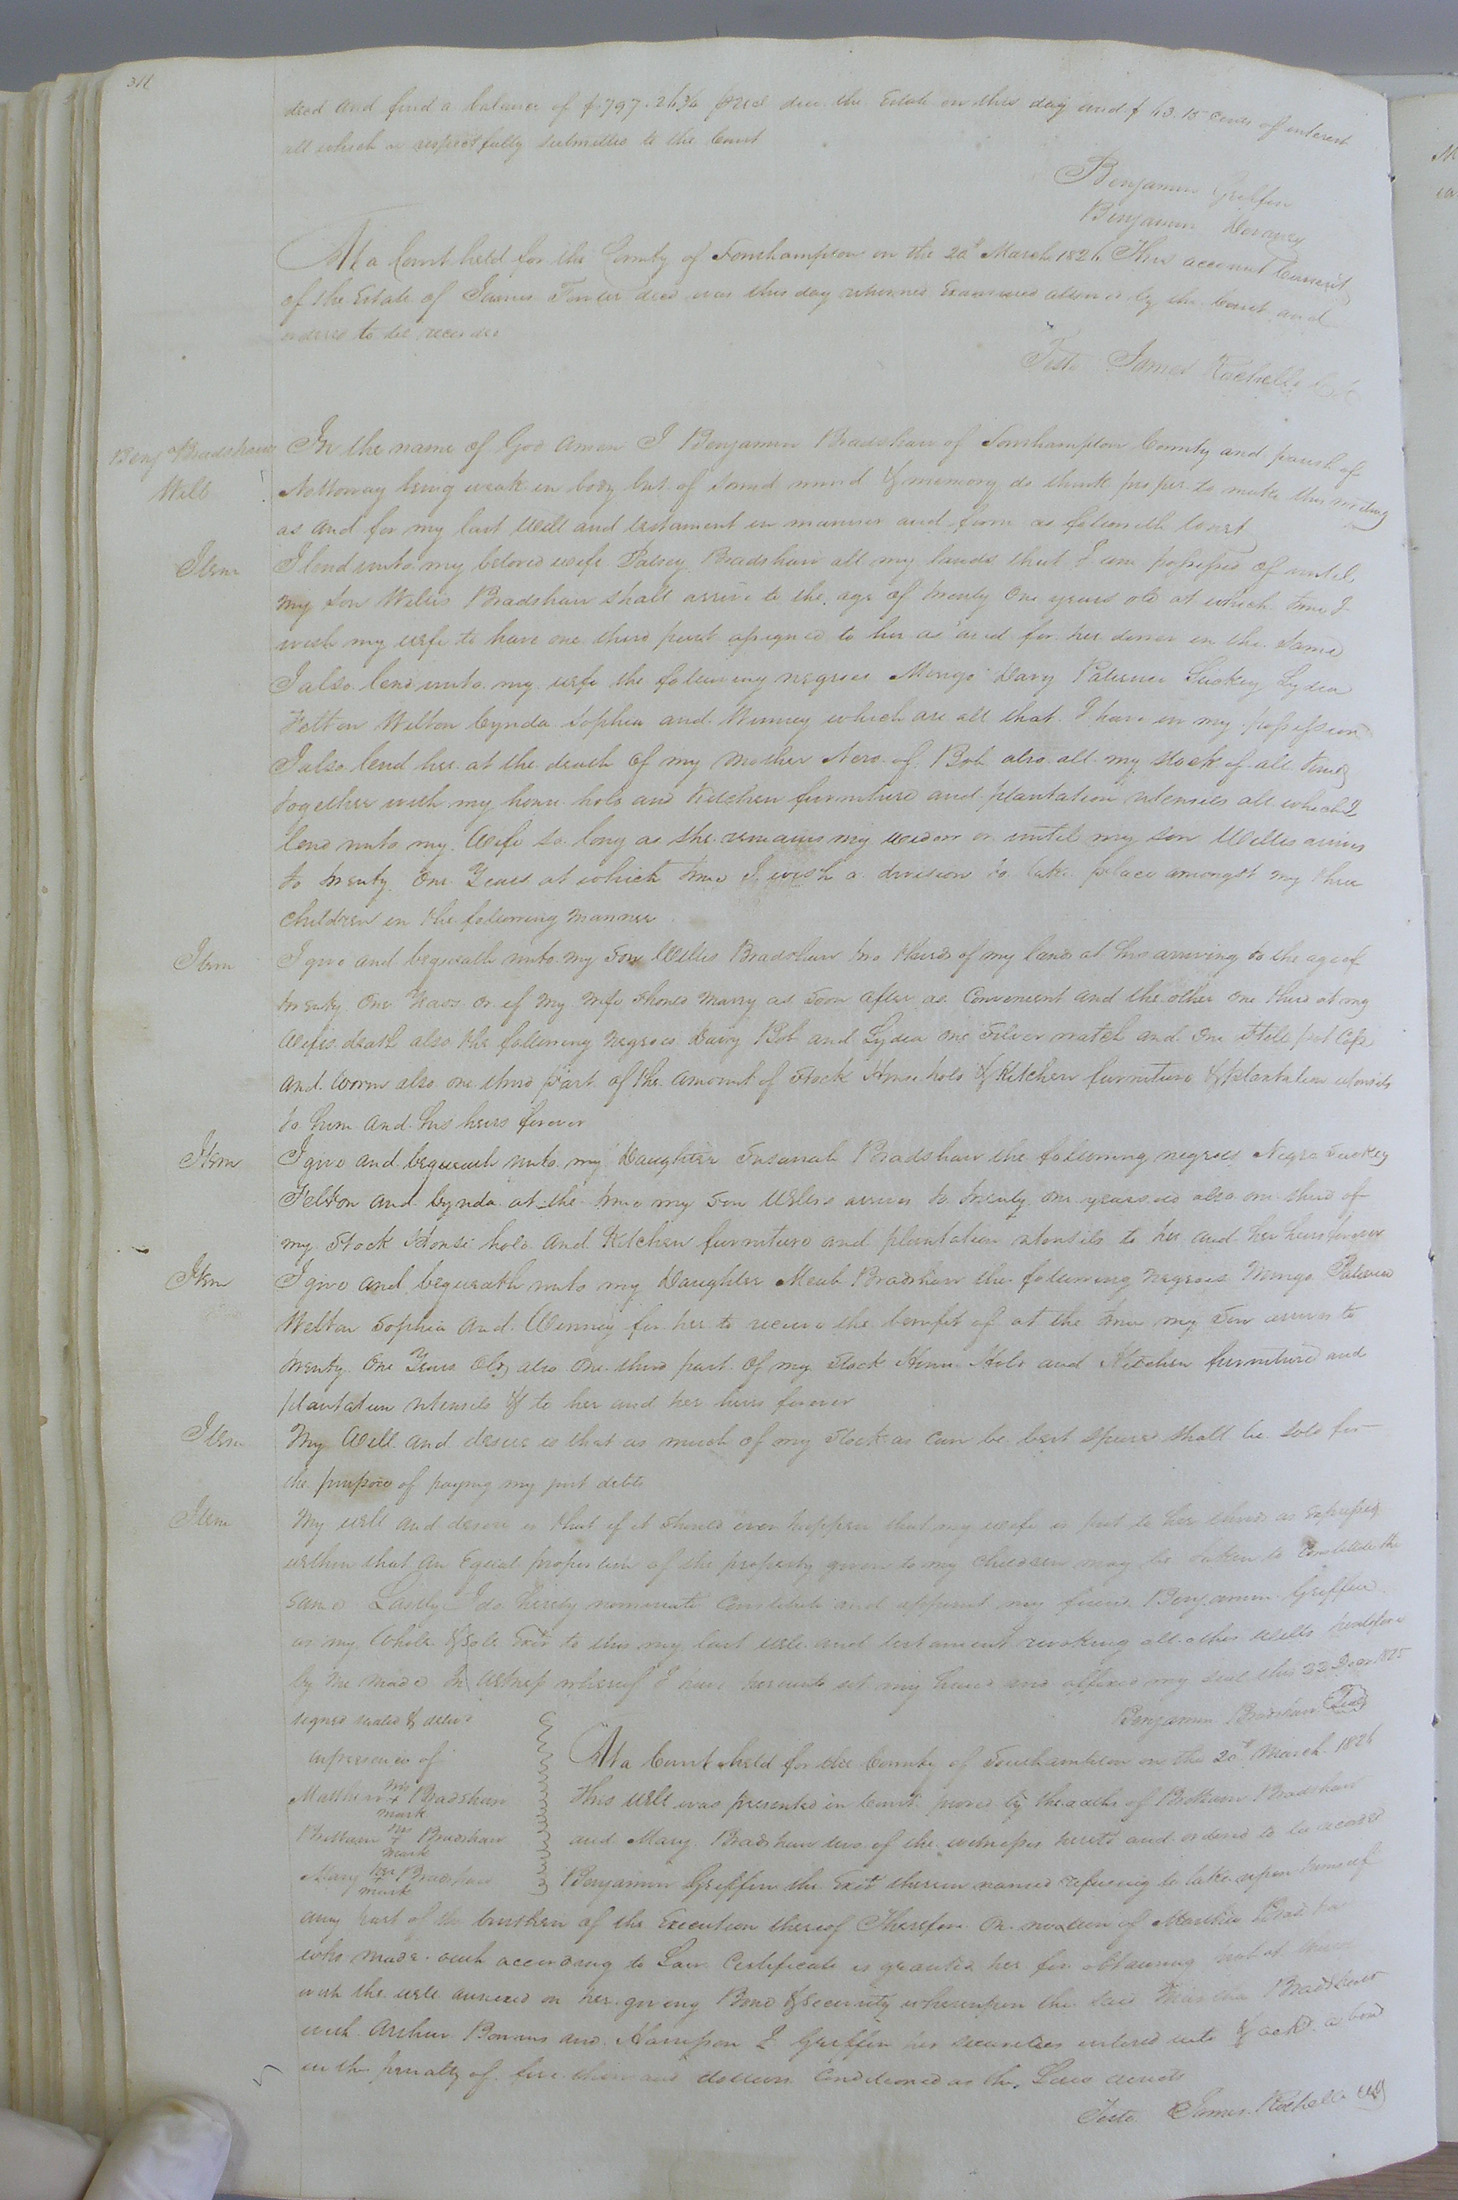 311
decd and find a balance of $797.26¾ due the Estate on this day and $43.15 cents of interest
all which is respectfully submitted to the Court
Benjamin Griffin
Benjamin Devany
At a Court held for the County of Southampton on the 20th March 1826 This account Current
of the Estate of James Fowler decd was this day returned Examined allowed by the Court and
ordered to be recorded
Teste James Rochelle
Benj Bradshaws
Will
In the name of God Amen I Benjamin Bradshaw of Southampton County and parish of
Nottoway being weak in body but of sound mind & memory do think proper to make this writing
as and for my last Will and testament in manner and form as followeth towit
Item
I lend unto my beloved wife Patsey Bradshaw all my lands that I am possessed of until
my son Willis Bradshaw shall arrive to the age of twenty One years old at which time I
wish my wife to have one third part assigned to her as and for her dower in the Same
I also lend unto my wife the following negroes Mingo Davy Patience Suckey Lydia
Felton Welton Cynda Sophia and Winney which are all that I have in my possession
I also lend her at the death of my mother Negro Bob also all my stock of all kinds
together with my house hold and Kitchen furniture and plantation utensils all which I
lend unto my Wife so long as she remains my widow or until my son Willis arrives
to twenty One Years at which time I wish a division to take place amongst my three
children in the following manner
Item
I give and bequeath unto my Son Willis Bradshaw two thirds of my lands at his arriving to the age of
twenty One Years or if my wife should marry as soon after as Convenient and the other One third at my
Wifes death also the following Negroes Davy Bob and Lydia one Silver watch and One Still pot Cap
and worm also one third part of the amount of Stock House hold & Kitchen furniture & plantation utensils
to him and his heirs forever
Item
I give and bequeath unto my Daughter Susanah Bradshaw the following negroes Negro Suckey
Felton and Cynda at the time my Son Willis arrives to twenty one years old also one third of
my Stock House hold and Kitchen furniture and plantation utensils to her and her heirs forever
Item
I give and bequeath unto my Daughter Meab Bradshaw the following negroes Mingo Patience
Welton Sophia and Winney for her to receive the benefit of at the time my Son arrives to
twenty One Years Old also One third part of my Stock House Hold and Kitchen furniture and
plantation utensils & to her and her heirs forever
Item
My Will and desire is that as much of my Stock as can be best spared shall be sold for
the purpose of paying my just debts
Item
My will and desire is that if it should ever happen that my wife is put to her thirds as expressed
within that an Equal proportion of the property given to my children may be taken to Constitute the
same Lastly I do hereby nominate Constitute and appoint my friend Benjamin Griffin
as my Whole & Sole Exor to this my last will and testament revoking all other wills heretofore
by me made In Witness whereof I have hereunto set my hand and affixed my seal this 22 Decr 1825
Benjamin Bradshaw Seal
signed sealed & delivd
in presence of
Matthew his + mark Bradshaw
Brittain his + mark Bradshaw
Mary her + mark Bradshaw
At a Court held for the County of Southampton on the 20th March 1826
This Will was presented in Court proved by the oaths of Brittain Bradshaw
and Mary Bradshaw two of the witnesses hereto and ordered to be recorded
Benjamin Griffin the Exor therein named refusing to take upon himself
any part of the burthen of the Execution thereof Therefore On motion of Martha Bradshaw
who made oath according to Law Certificate is granted her for obtaining
with the will annexed on her giving Bond & Security whereupon the said Martha Bradshaw
with Arthur Bowins and Sampson J Griffin her securities entered into & ackd a bond
in the penalty of five thousand dollars Conditioned as the Law directs
Teste James Rochelle Clk